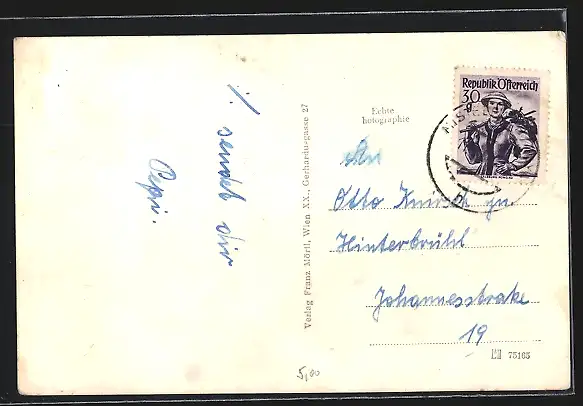 sendet dir
Pepi.
Verlag Franz Mörtl, Wien XX., Gerhardusgasse 27
Echte
hotographie
Republik Österreich
30
An
Otto
Hinterbrühl
Johannesstraße
19
75165
5,00